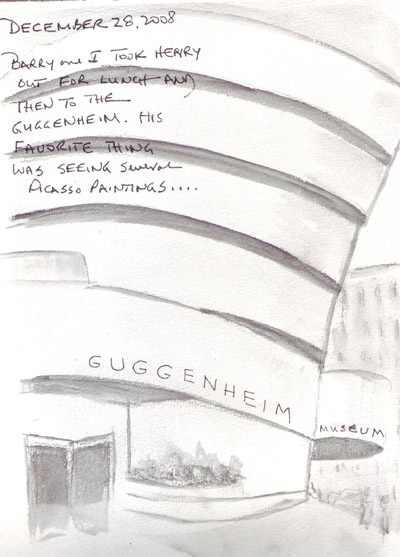 DECEMBER 28, 2008
BARRY and I TOOK HENRY
OUT FOR LUNCH AND
THEN TO THE
GUGGENHEIM. HIS
FAVORITE THING
WAS SEEING several
PICASSO PAINTINGS....
GUGGENHEIM
MUSEUM